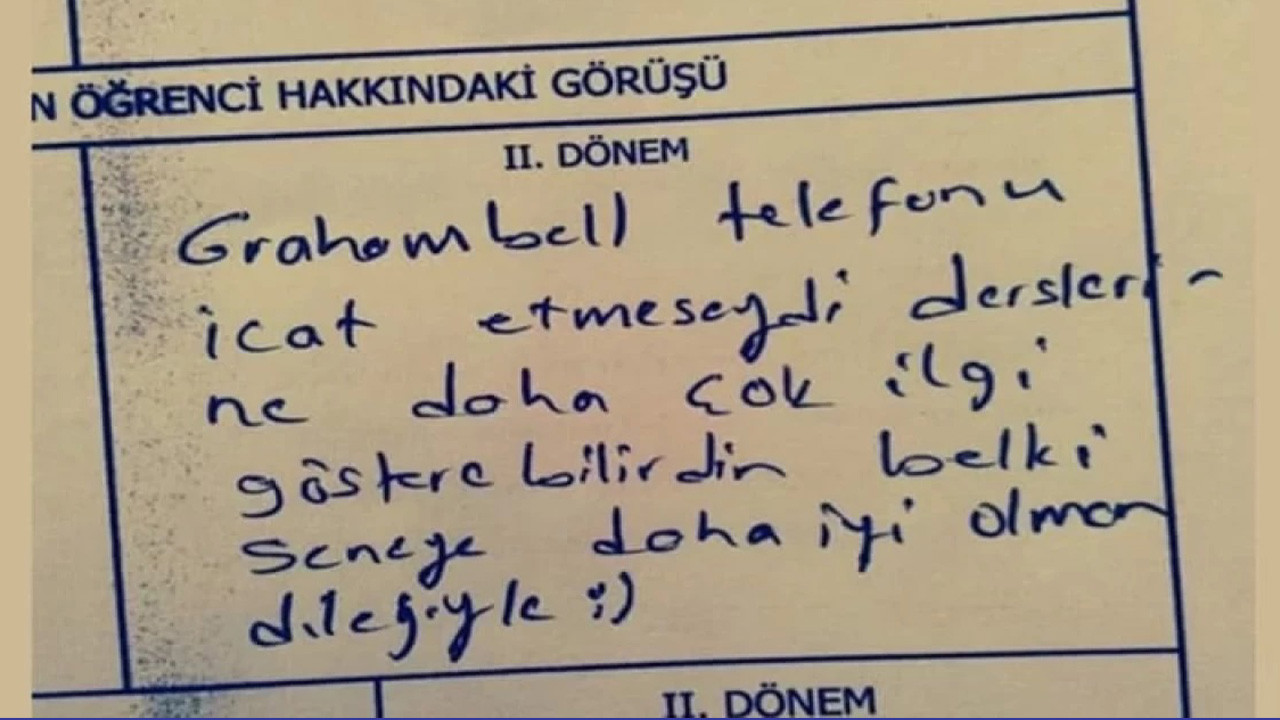 N ÖĞRENCİ HAKKINDAKİ GÖRÜŞÜ
II. DÖNEM
Grahambell telefonu
icat etmeseydi dersleri-
ne daha çok ilgi
gösterebilirdin belki
seneye daha iyi olman
dileğiyle :)
II. DÖNEM